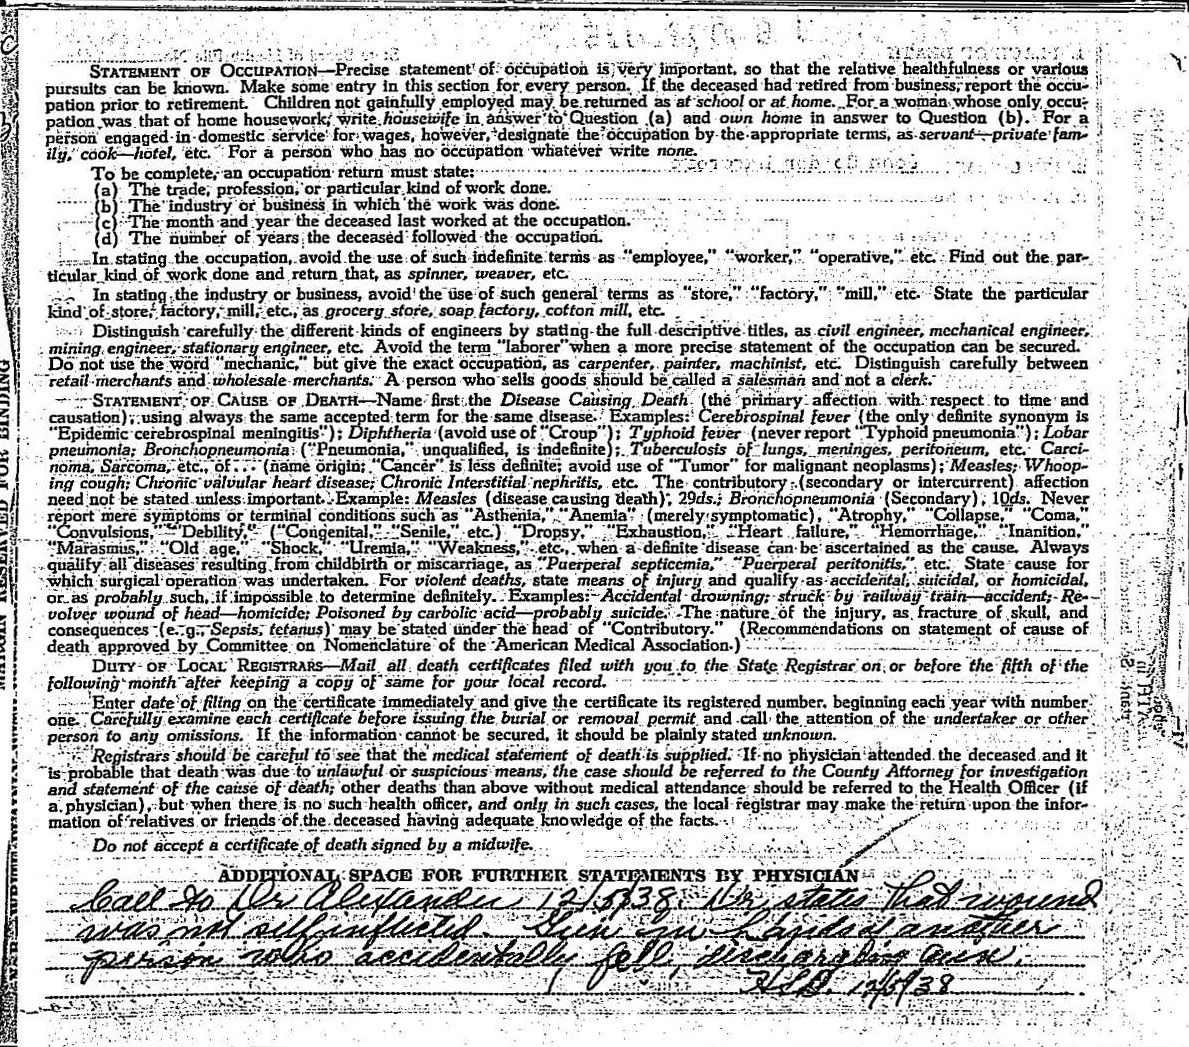 STATEMENT OF OCCUPATION—Precise statement of occupation is very important, so that the relative healthfulness or various
pursuits can be known. Make some entry in this section for every person. If the deceased had retired from business, report the occu-
pation prior to retirement. Children not gainfully employed may be returned as at school or at home. For a woman whose only occu-
pation was that of home housework, write housewife in answer to Question (a) and own home in answer to Question (b). For a
person engaged in domestic service for wages, however, designate the occupation by the appropriate terms, as servant—private fam-
ily, cook—hotel, etc. For a person who has no occupation whatever write none.
To be complete, an occupation return must state:
(a) The trade, profession, or particular kind of work done.
(b) The industry or business in which the work was done.
(c) The month and year the deceased last worked at the occupation.
(d) The number of years the deceased followed the occupation.
In stating the occupation, avoid the use of such indefinite terms as "employee," "worker," "operative," etc. Find out the par-
ticular kind of work done and return that, as spinner, weaver, etc.
In stating the industry or business, avoid the use of such general terms as "store," "factory," "mill," etc. State the particular
kind of store, factory, mill, etc., as grocery store, soap factory, cotton mill, etc.
Distinguish carefully the different kinds of engineers by stating the full descriptive titles, as civil engineer, mechanical engineer,
mining engineer, stationary engineer, etc. Avoid the term "laborer" when a more precise statement of the occupation can be secured.
Do not use the word "mechanic," but give the exact occupation, as carpenter, painter, machinist, etc. Distinguish carefully between
retail merchants and wholesale merchants. A person who sells goods should be called a salesman and not a clerk.
STATEMENT OF CAUSE OF DEATH—Name first the Disease Causing Death (the primary affection with respect to time and
causation), using always the same accepted term for the same disease. Examples: Cerebrospinal fever (the only definite synonym is
"Epidemic cerebrospinal meningitis"); Diphtheria (avoid use of "Croup"); Typhoid fever (never report "Typhoid pneumonia"); Lobar
pneumonia; Bronchopneumonia ("Pneumonia," unqualified, is indefinite); Tuberculosis of lungs, meninges, peritoneum, etc. Carci-
noma, Sarcoma, etc., of... (name origin; "Cancer" is less definite; avoid use of "Tumor" for malignant neoplasms); Measles; Whoop-
ing cough; Chronic valvular heart disease; Chronic Interstitial nephritis, etc. The contributory (secondary or intercurrent) affection
need not be stated unless important. Example: Measles (disease causing death), 29ds.; Bronchopneumonia (Secondary), 10ds. Never
report mere symptoms or terminal conditions such as "Asthenia," "Anemia" (merely symptomatic), "Atrophy," "Collapse," "Coma,"
"Convulsions," "Debility," ("Congenital," "Senile, etc.) "Dropsy," "Exhaustion," "Heart failure," "Hemorrhage," "Inanition,"
"Marasmus," "Old age," "Shock," "Uremia," "Weakness," etc., when a definite disease can be ascertained as the cause. Always
qualify all diseases resulting from childbirth or miscarriage, as "Puerperal septicemia," "Puerperal peritonitis," etc. State cause for
which surgical operation was undertaken. For violent deaths, state means of injury and qualify as accidental, suicidal, or homicidal,
or as probably such, if impossible to determine definitely. Examples: Accidental drowning; struck by railway train—accident; Re-
volver wound of head—homicide; Poisoned by carbolic acid—probably suicide. The nature of the injury, as fracture of skull, and
consequences (e. g., Sepsis, tetanus) may be stated under the head of "Contributory." (Recommendations on statement of cause of
death approved by Committee on Nomenclature of the American Medical Association.)
DUTY OF LOCAL REGISTRARS—Mail all death certificates filed with you to the State Registrar on or before the fifth of the
following month after keeping a copy of same for your local record.
Enter date of filing on the certificate immediately and give the certificate its registered number, beginning each year with number
one. Carefully examine each certificate before issuing the burial or removal permit and call the attention of the undertaker or other
person to any omissions. If the information cannot be secured, it should be plainly stated unknown.
Registrars should be careful to see that the medical statement of death is supplied. If no physician attended the deceased and it
is probable that death was due to unlawful or suspicious means, the case should be referred to the County Attorney for investigation
and statement of the cause of death; other deaths than above without medical attendance should be referred to the Health Officer (if
a physician), but when there is no such health officer, and only in such cases, the local registrar may make the return upon the infor-
mation of relatives or friends of the deceased having adequate knowledge of the facts.
Do not accept a certificate of death signed by a midwife.
ADDITIONAL SPACE FOR FURTHER STATEMENTS BY PHYSICIAN
Call to Dr Alexander 12/5/38. Dr states that wound
was not self inflicted. Gun in hands of another
person who accidentally fell, discharging gun.
12/5/38
MARGIN RESERVED FOR BINDING